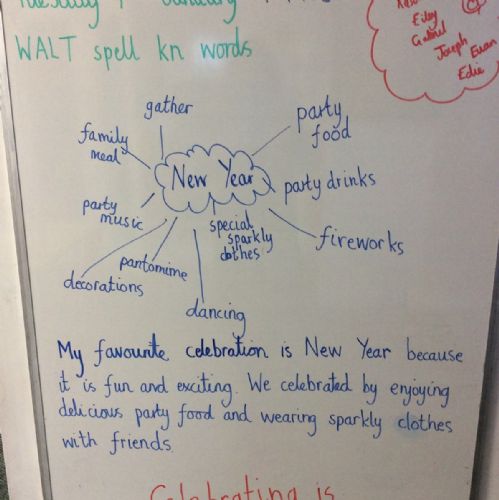 January
WALT spell kn words
Eiley
Gabriel
Joseph
Euan
Edie
gather
party
food
family
meal
New Year
party drinks
party
music
special
sparkly
clothes
fireworks
pantomime
decorations
dancing
My favourite celebration is New Year because
it is fun and exciting. We celebrated by enjoying
delicious party food and wearing sparkly clothes
with friends
Celebrating is